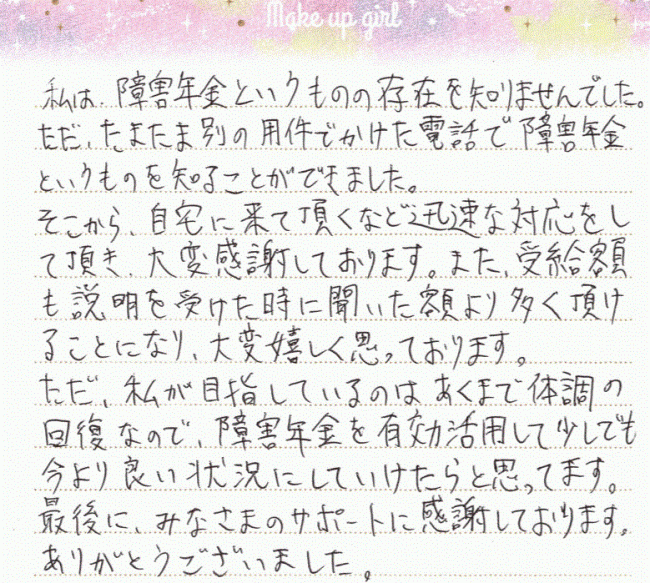 Make up girl
私は、障害年金というものの存在を知りませんでした。
ただ、たまたま別の用件でかけた電話で障害年金
というものを知ることができました。
そこから、自宅に来て頂くなど迅速な対応をし
て頂き、大変感謝しております。また、受給額
も説明を受けた時に聞いた額より多く頂け
ることになり、大変嬉しく思っております。
ただ、私が目指しているのはあくまで体調の
回復なので、障害年金を有効活用して少しでも
今より良い状況にしていけたらと思ってます。
最後に、みなさまのサポートに感謝しております。
ありがとうございました。